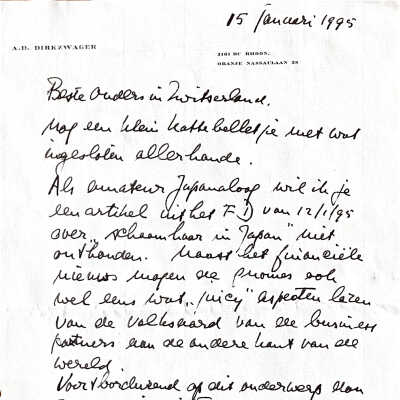 15 Januari 1995
A.D. DIRKZWAGER
3161 BC RHOON,
ORANJE NASSAULAAN 28
Beste Ouders in Zwitserland,
Nog een klein kattebelletje met wat
ingesloten allerhande.
Als amateur Japanoloog wil ik je
een artikel uit het FD van 12/1/95
over "schaamhaar in Japan" niet
onthouden. Naast het financiële
nieuws mogen de promes ook
wel eens wat "juicy" aspecten lezen
van de volksaard van de business
partners aan de andere kant van de
wereld.
Voortbordurend op dit onderwerp kan